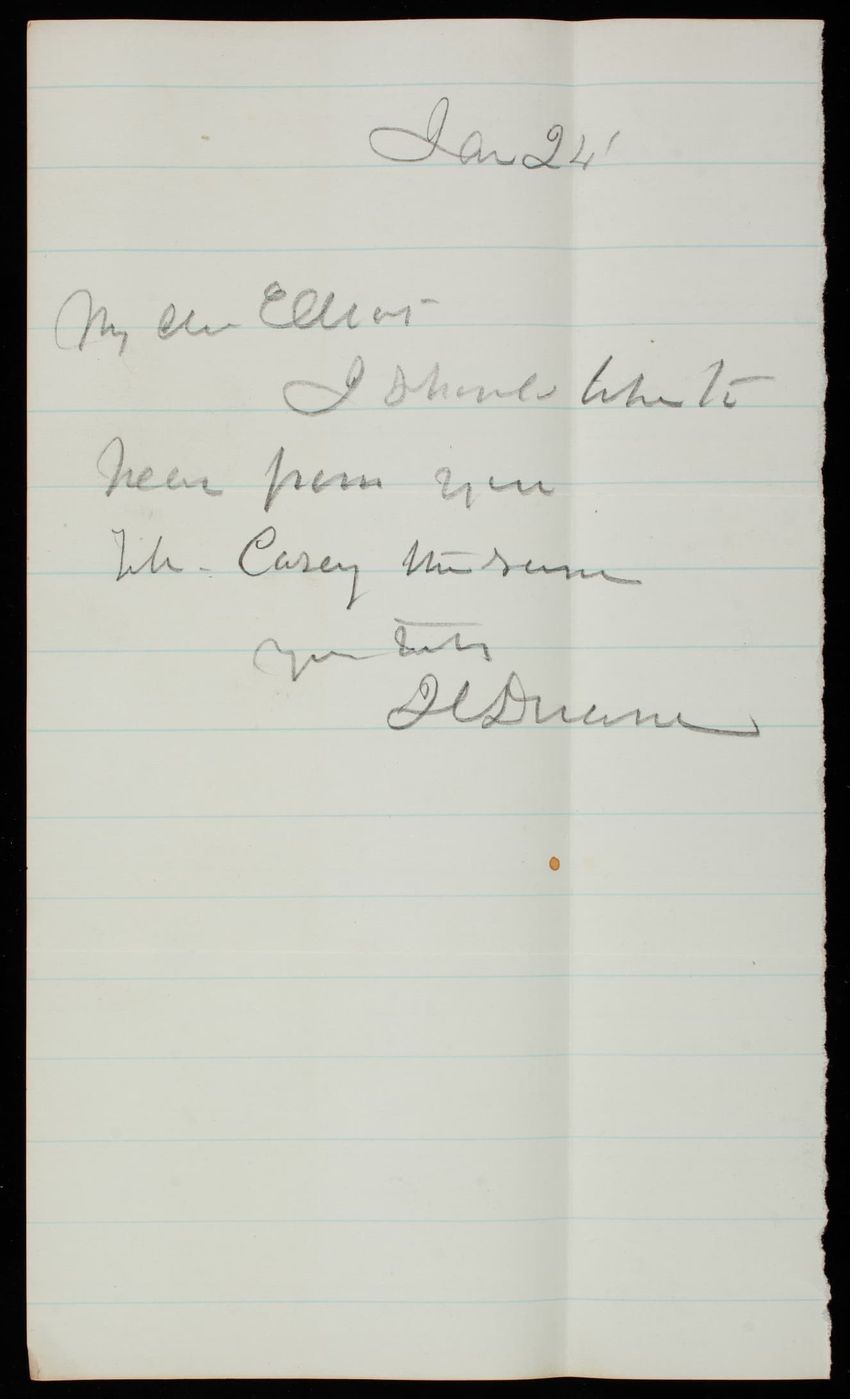 Jan 24'
My dear Elliot
I should like to
hear from you
Casey
yours truly
J C Duane